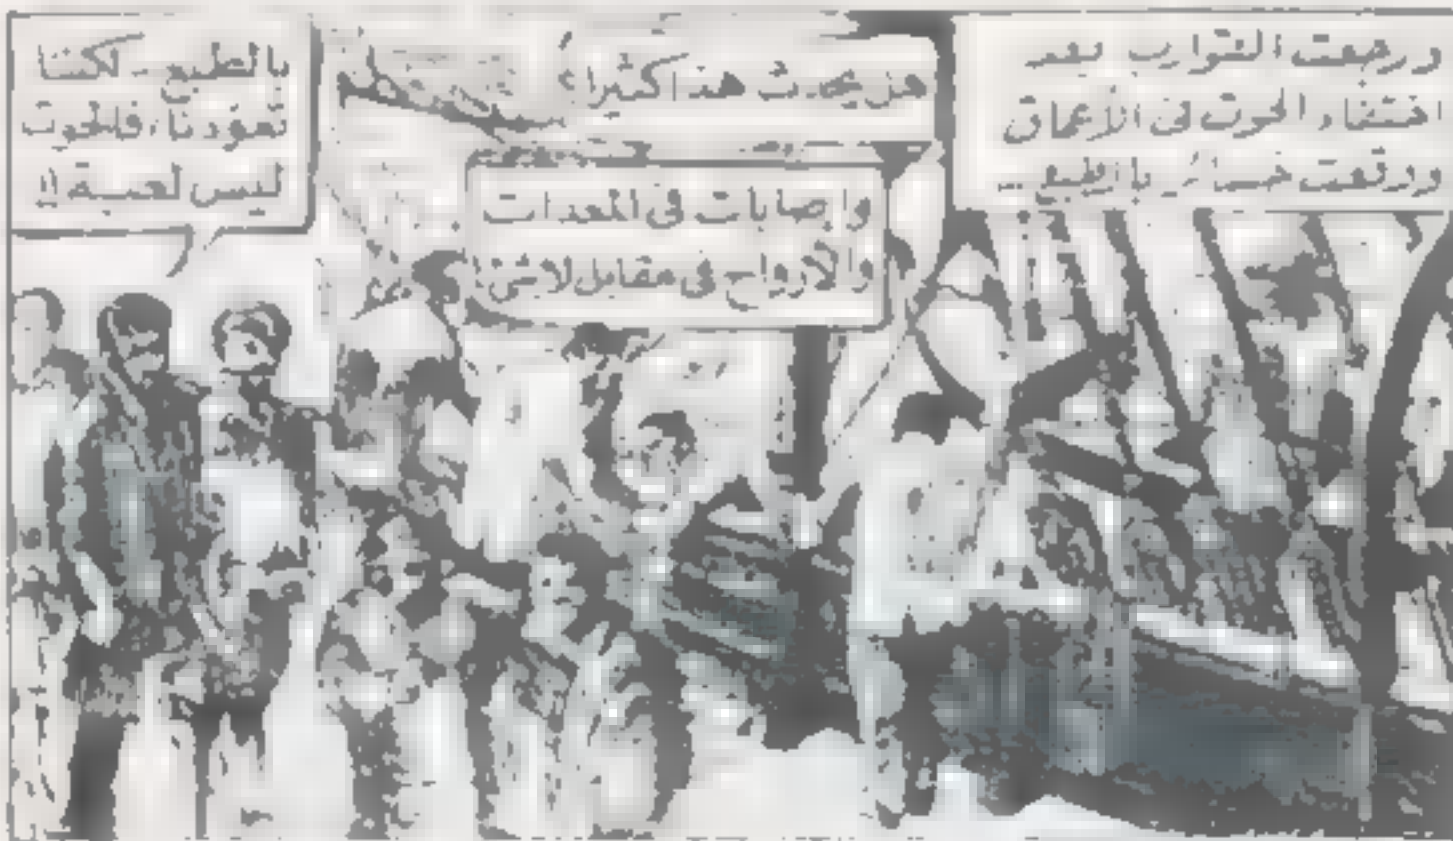 ورفعت القوارب بعد
اختفاء الحوت فى الأعماق
ووقعت خسائر بالطبع ..
وإصابات فى المعدات
والأرواح فى مقابل لاشئ !
هل يحدث هذا كثيرا ؟
بالطبع - لكننا
تعودنا ، فالحوت
ليس لعبة !!